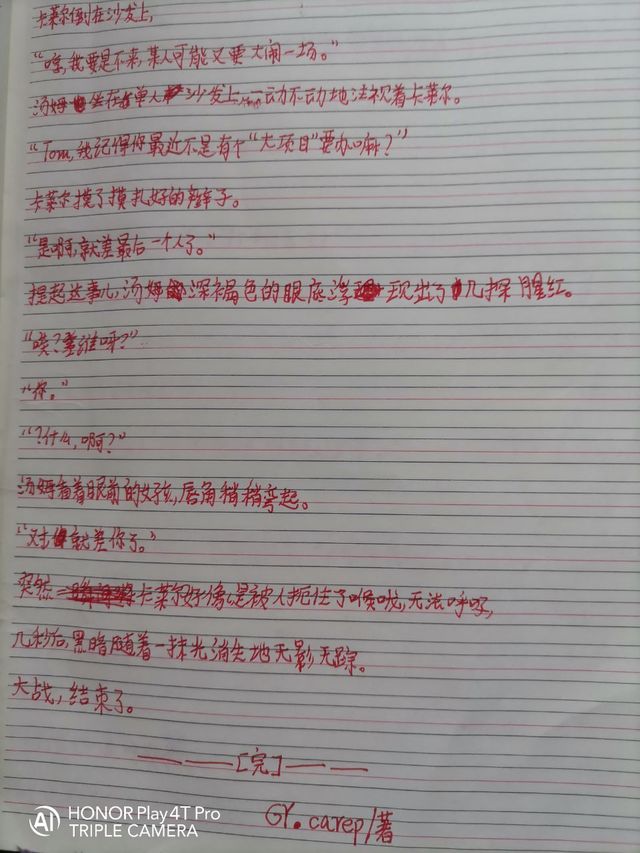 卡莱尔倒在沙发上,
“哼,我要是不来,某人可能又要大闹一场。”
汤姆坐在单人沙发上,一动不动地注视着卡莱尔。
“Tom,我记得你最近不是有个“大项目”要办嘛?”
卡莱尔摸了摸扎好的辫子。
“是啊,就差最后一个人了。”
提起这事儿,汤姆深褐色的眼底浮现出了几抹腥红。
“唉?谁呀?”
“你。”
“?什么,啊?”
汤姆看着眼前的女孩,唇角稍稍弯起。
“对就差你了。”
突然卡莱尔好像是被人扼住了喉咙,无法呼吸,
几秒后,黑暗随着一抹光消失地无影无踪。
大战,结束了。
———[完]———
GY.carep/著
AI HONOR Play4T Pro
TRIPLE CAMERA